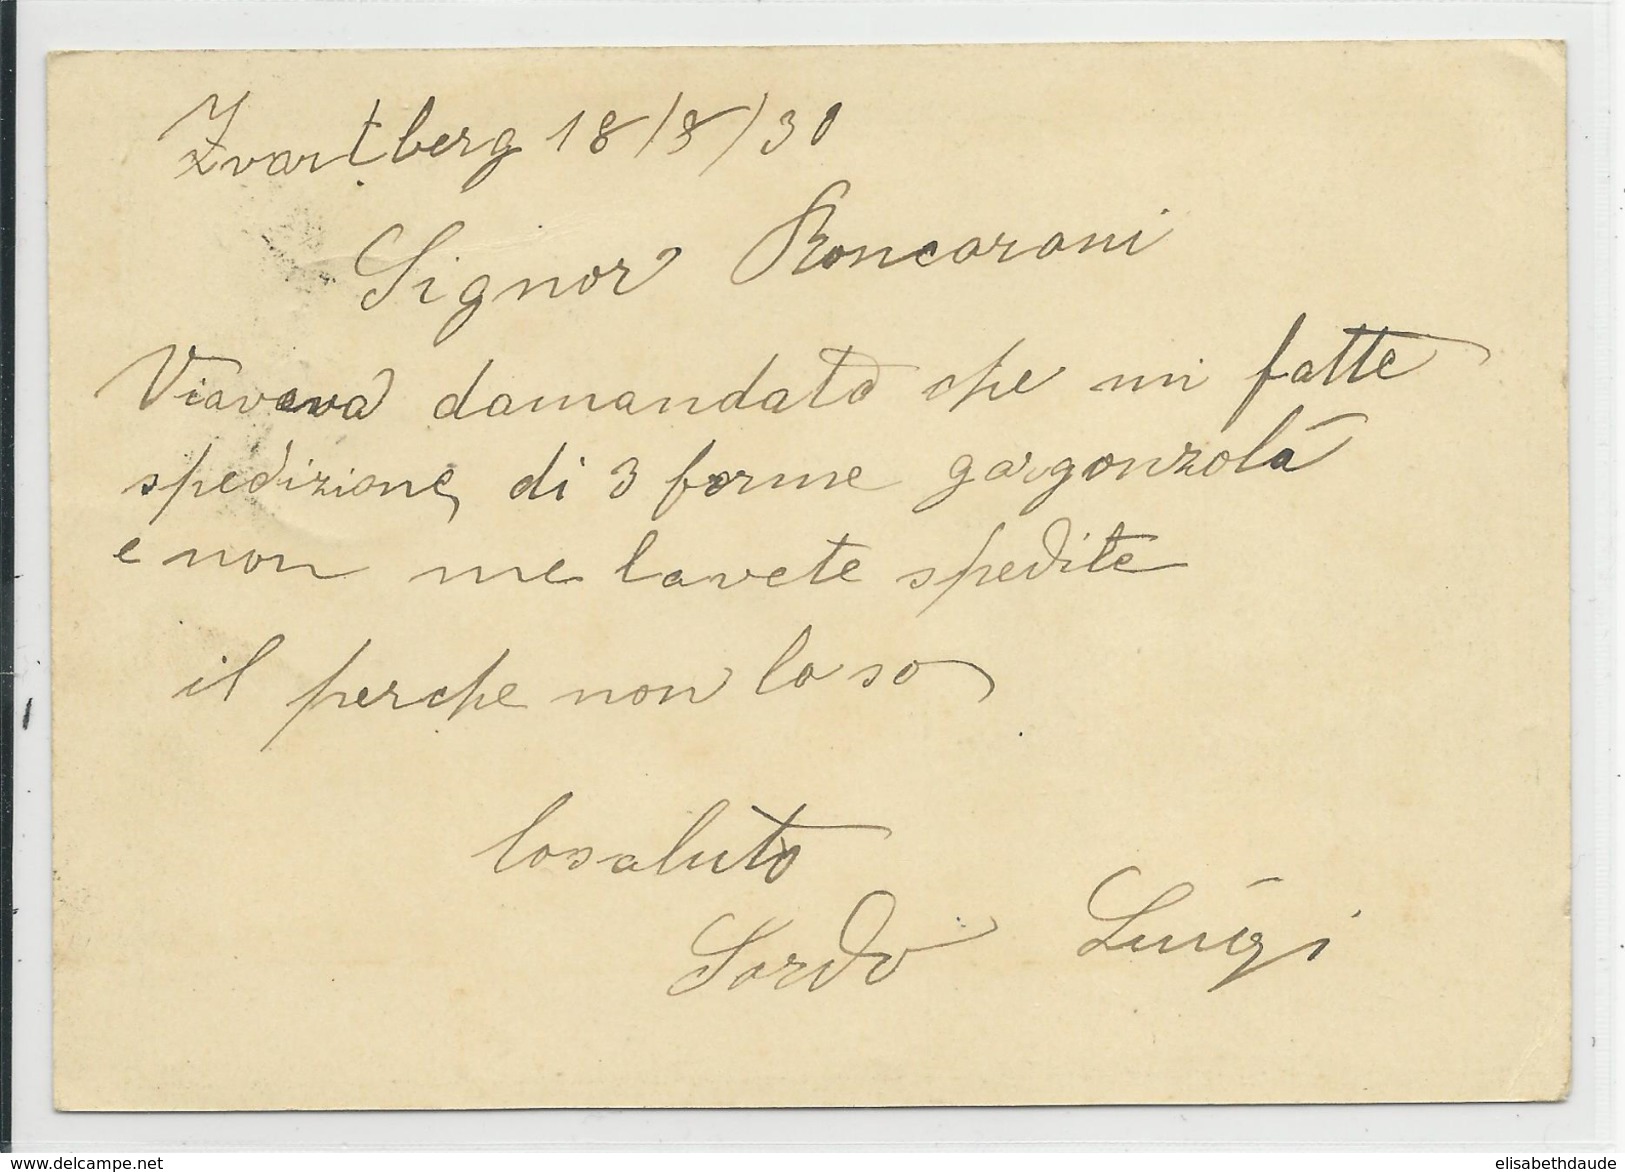 Zvartberg 18/8/30
Signor Roncarani
Viaveva damandato che mi fatte
spedizione di 3 forme gargonzola
e non me lavete spedite
il perche non lo so
losaluto
Sordo Luigi
elisabethdaude